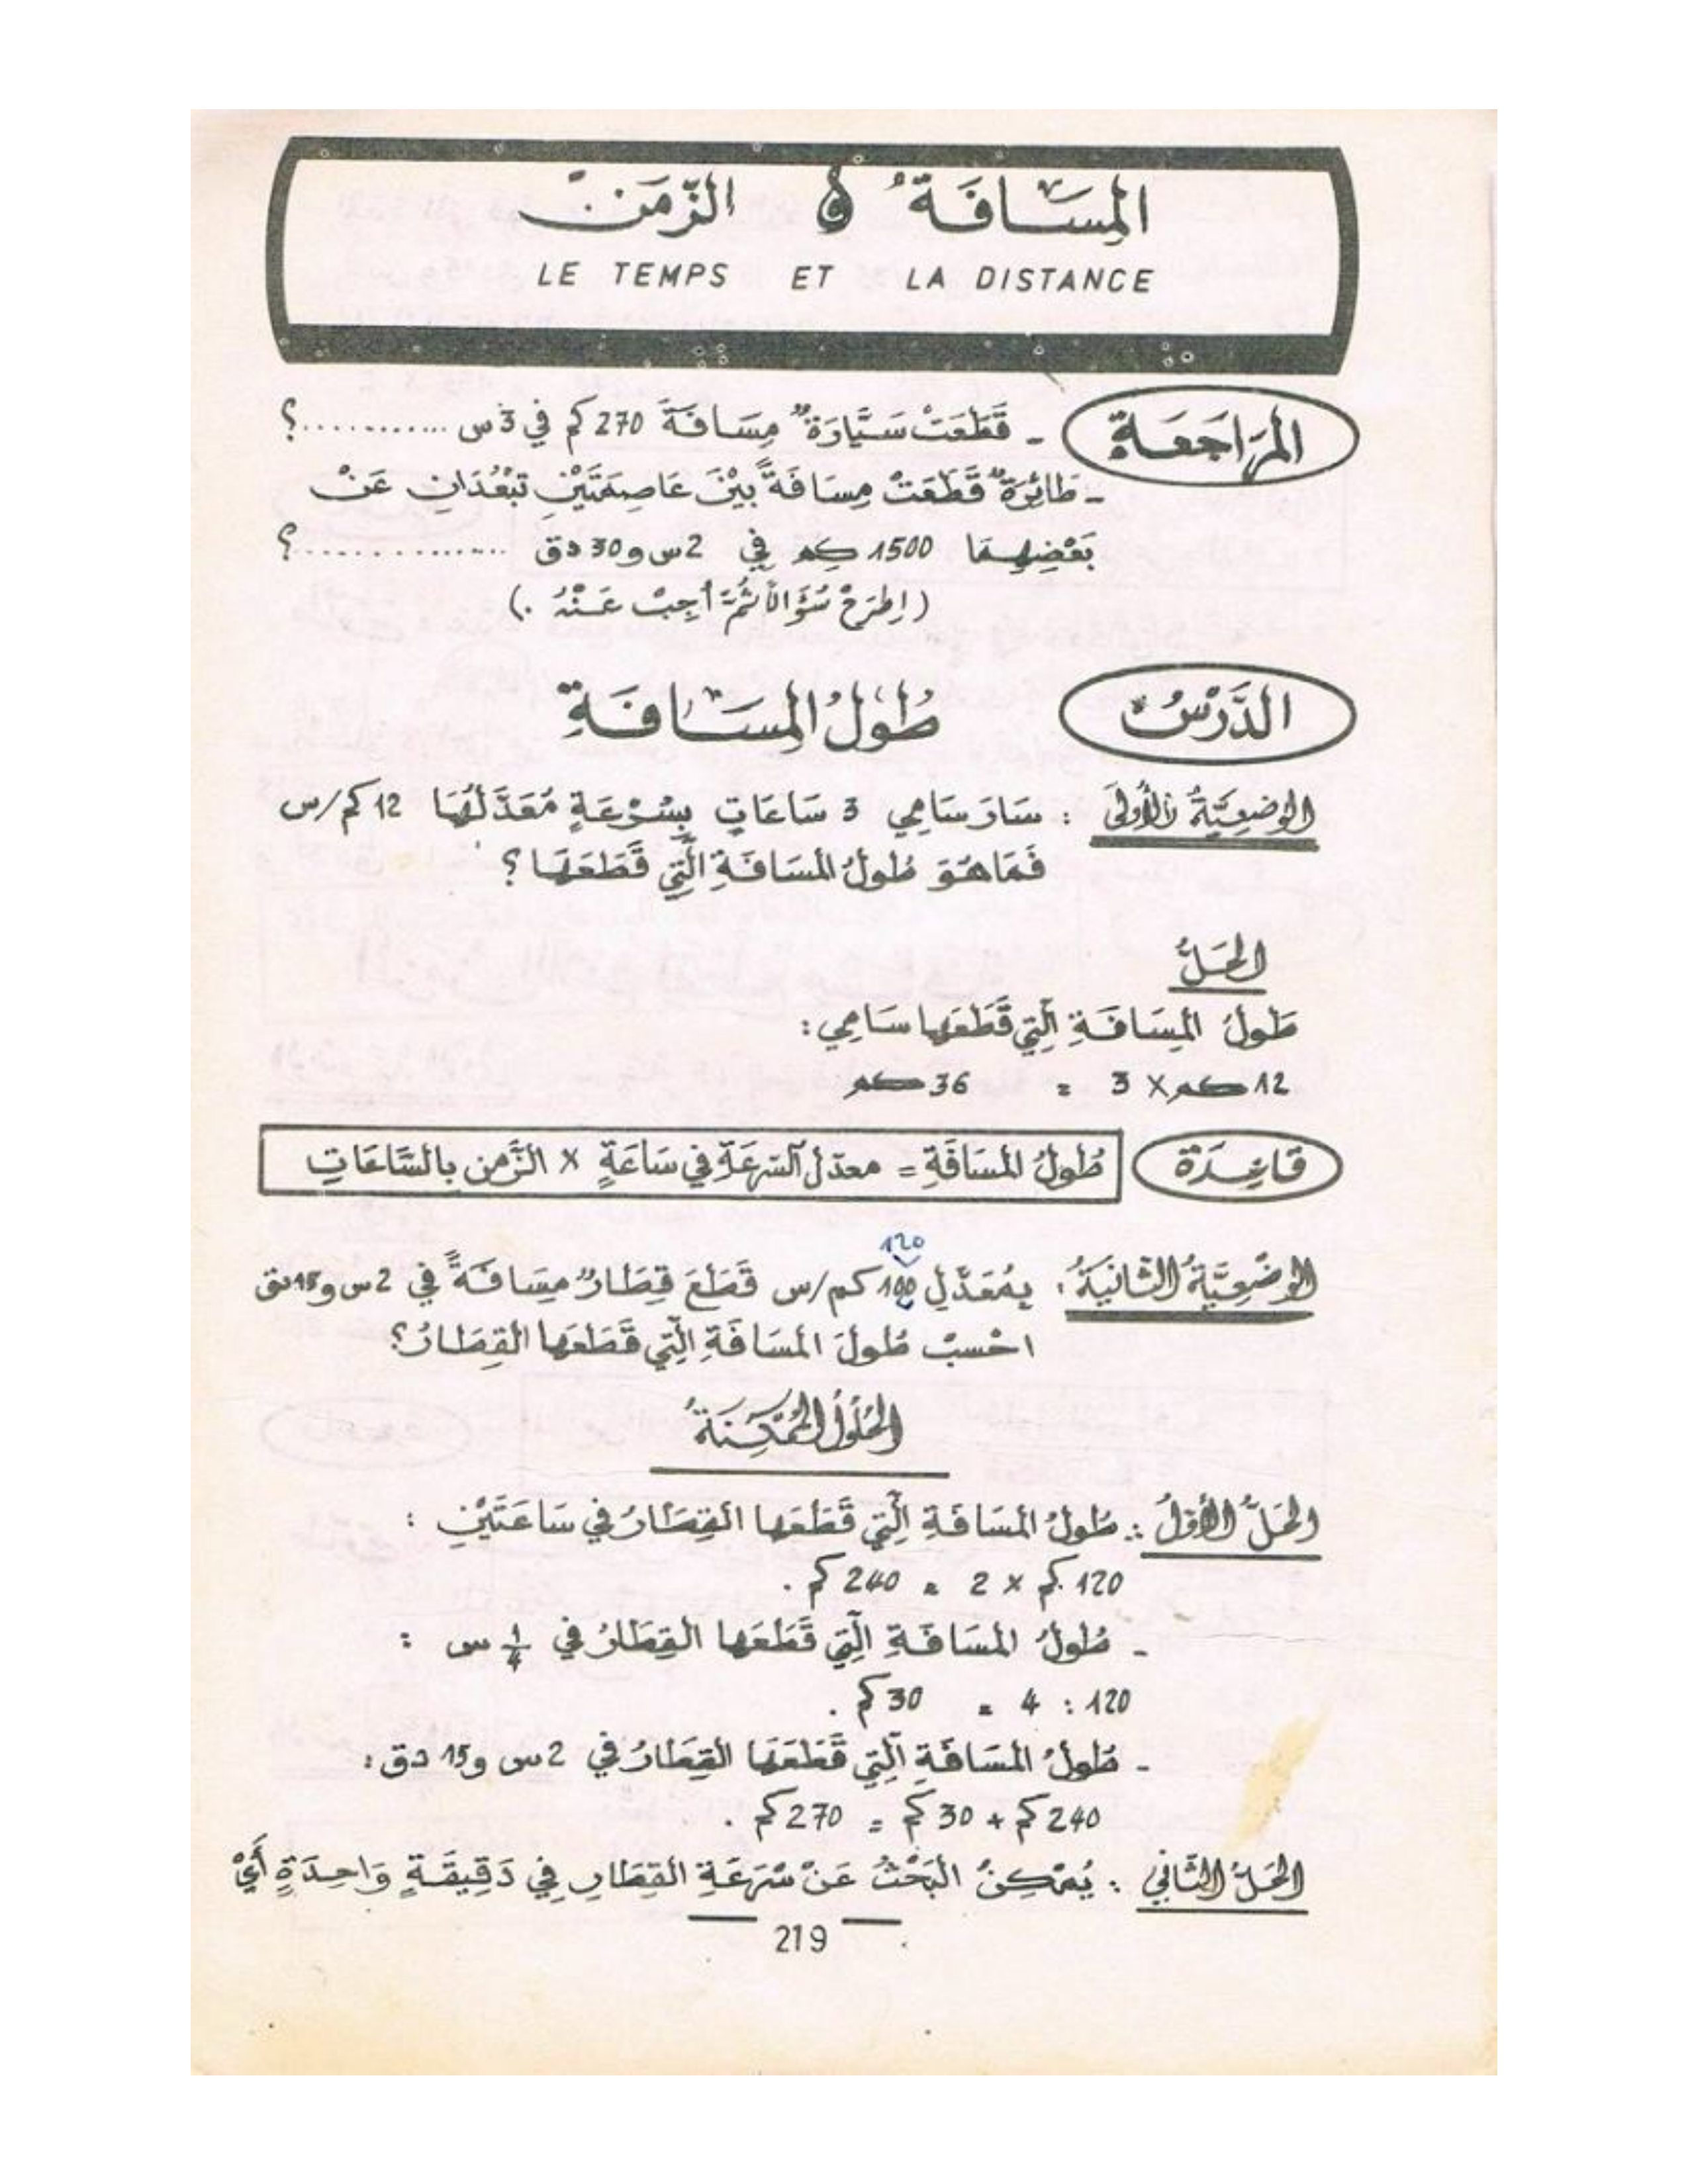 المسَافَةُ و الزّمَنْ
LE TEMPS ET LA DISTANCE
المرَاجَعَةُ
- قَطَعَتْ سَيَّارَةٌ مِسَافَةَ 270 كم في 3 س ............؟
- طَائِرَةٌ قَطَعَتْ مِسَافَةً بَيْنَ عَاصِمَتَيْنِ تَبْعُدَانِ عَنْ
بَعْضِهِمَا 1500 كم في 2 س و 30 دق ..............؟
(اِطْرَحْ سُؤَالاً ثُمَّ أَجِبْ عَنْهُ .)
الدَّرْسُ
طُولُ المسَافَةِ
الوضعِيَّةُ الأُولَى : سَارَ سَامِي 3 سَاعَاتٍ بِسُرْعَةٍ مُعَدَّلُهَا 12 كم/س
فَمَا هُوَ طُولُ المسَافَةِ الَّتِي قَطَعَهَا ؟
الحَلُّ
طُولُ المسَافَةِ الَّتِي قَطَعَهَا سَامِي :
12 كم × 3 = 36 كم
قَاعِدَة
طُولُ المسَافَةِ = معدّل السّرعَةِ في سَاعَةٍ × الزَّمن بالسَّاعَاتِ
120
الوَضْعِيَّةُ الثَّانِيَةُ : بِمُعَدَّلِ 100 كم/س قَطَعَ قِطَارٌ مِسَافَةً في 2 س و 15 دق
احْسبْ طُولَ المسَافَةِ الَّتِي قَطَعَهَا القِطَارُ؟
الحُلُولُ المُمْكِنَةُ
الحَلُّ الأَوَّلُ : طُولُ المسَافَةِ الَّتِي قَطَعَهَا القِطَارُ في سَاعَتَيْنِ :
120 كم × 2 = 240 كم .
- طُولُ المسَافَةِ الَّتِي قَطَعَهَا القِطَارُ في 1/4 س :
120 : 4 = 30 كم .
- طُولُ المسَافَةِ الَّتِي قَطَعَهَا القِطَارُ في 2 س و 15 دق :
240 كم + 30 كم = 270 كم .
الحَلُّ الثَّانِي : يُمْكِنُ البَحْثُ عَنْ سُرْعَةِ القِطَارِ في دَقِيقَةٍ وَاحِدَةٍ أَيْ
219